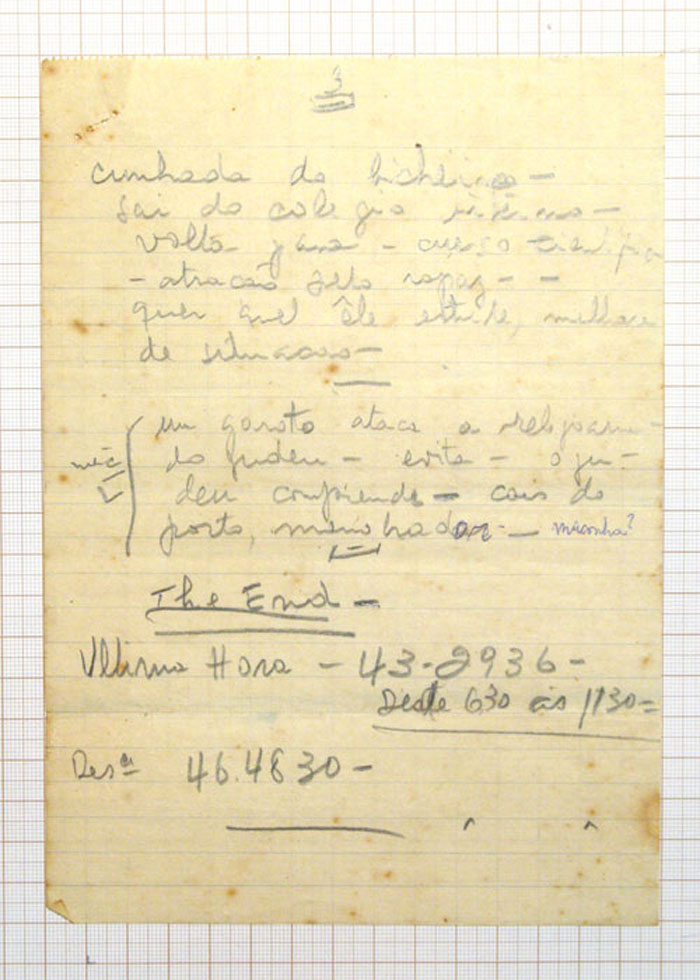 3
cunhada do bicheiro —
sai do colegio interno —
volta para - curso
- atracão pelo rapaz - -
quer que êle estude, melhore
de situacão —
um garoto ataca a
do judeu — evita — o ju-
deu compreende — cais do
porto, — maconha?
The End —
Ultima Hora — 43-2936 —
Desde 630 às 1130 =
Resª 46.4830 —